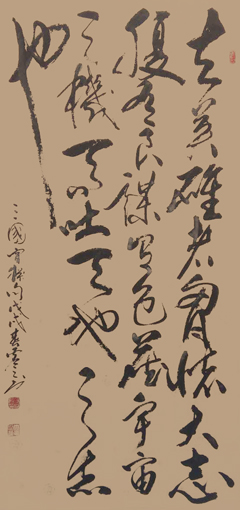 夫英雄者胸懷大志
腹有良謀有包藏宇宙
之機吞吐天地之志
也
三國句戊戌春